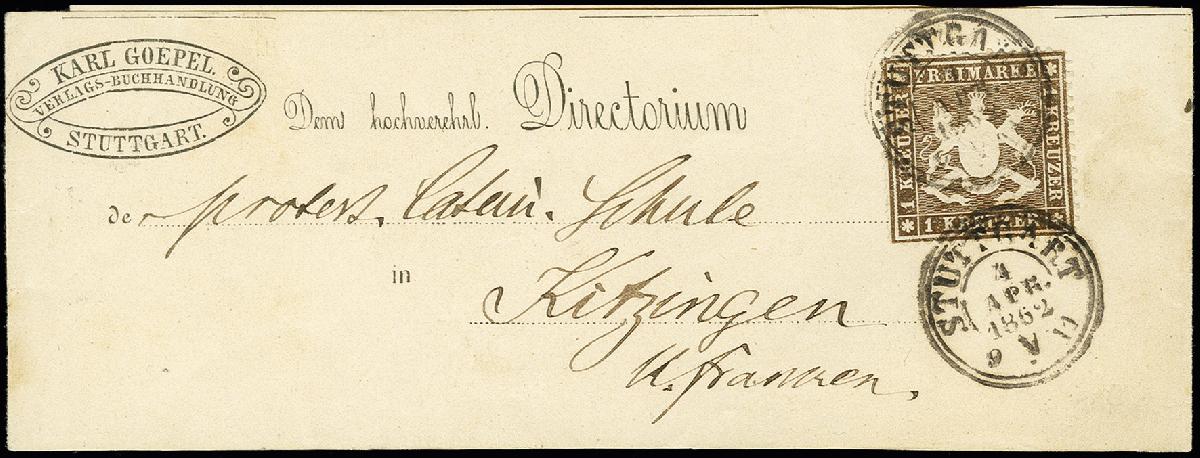 KARL GOEPEL.
VERLAGS-BUCHHANDLUNG
STUTTGART.
Dem hochverehrl. Directorium
der protest. Latein. Schule
in
Kitzingen
U. Franken.
FREIMARKE
1 KREUZER
KREUZER
1 KREUZER
STUTTGART
4
APR.
1862
9 V